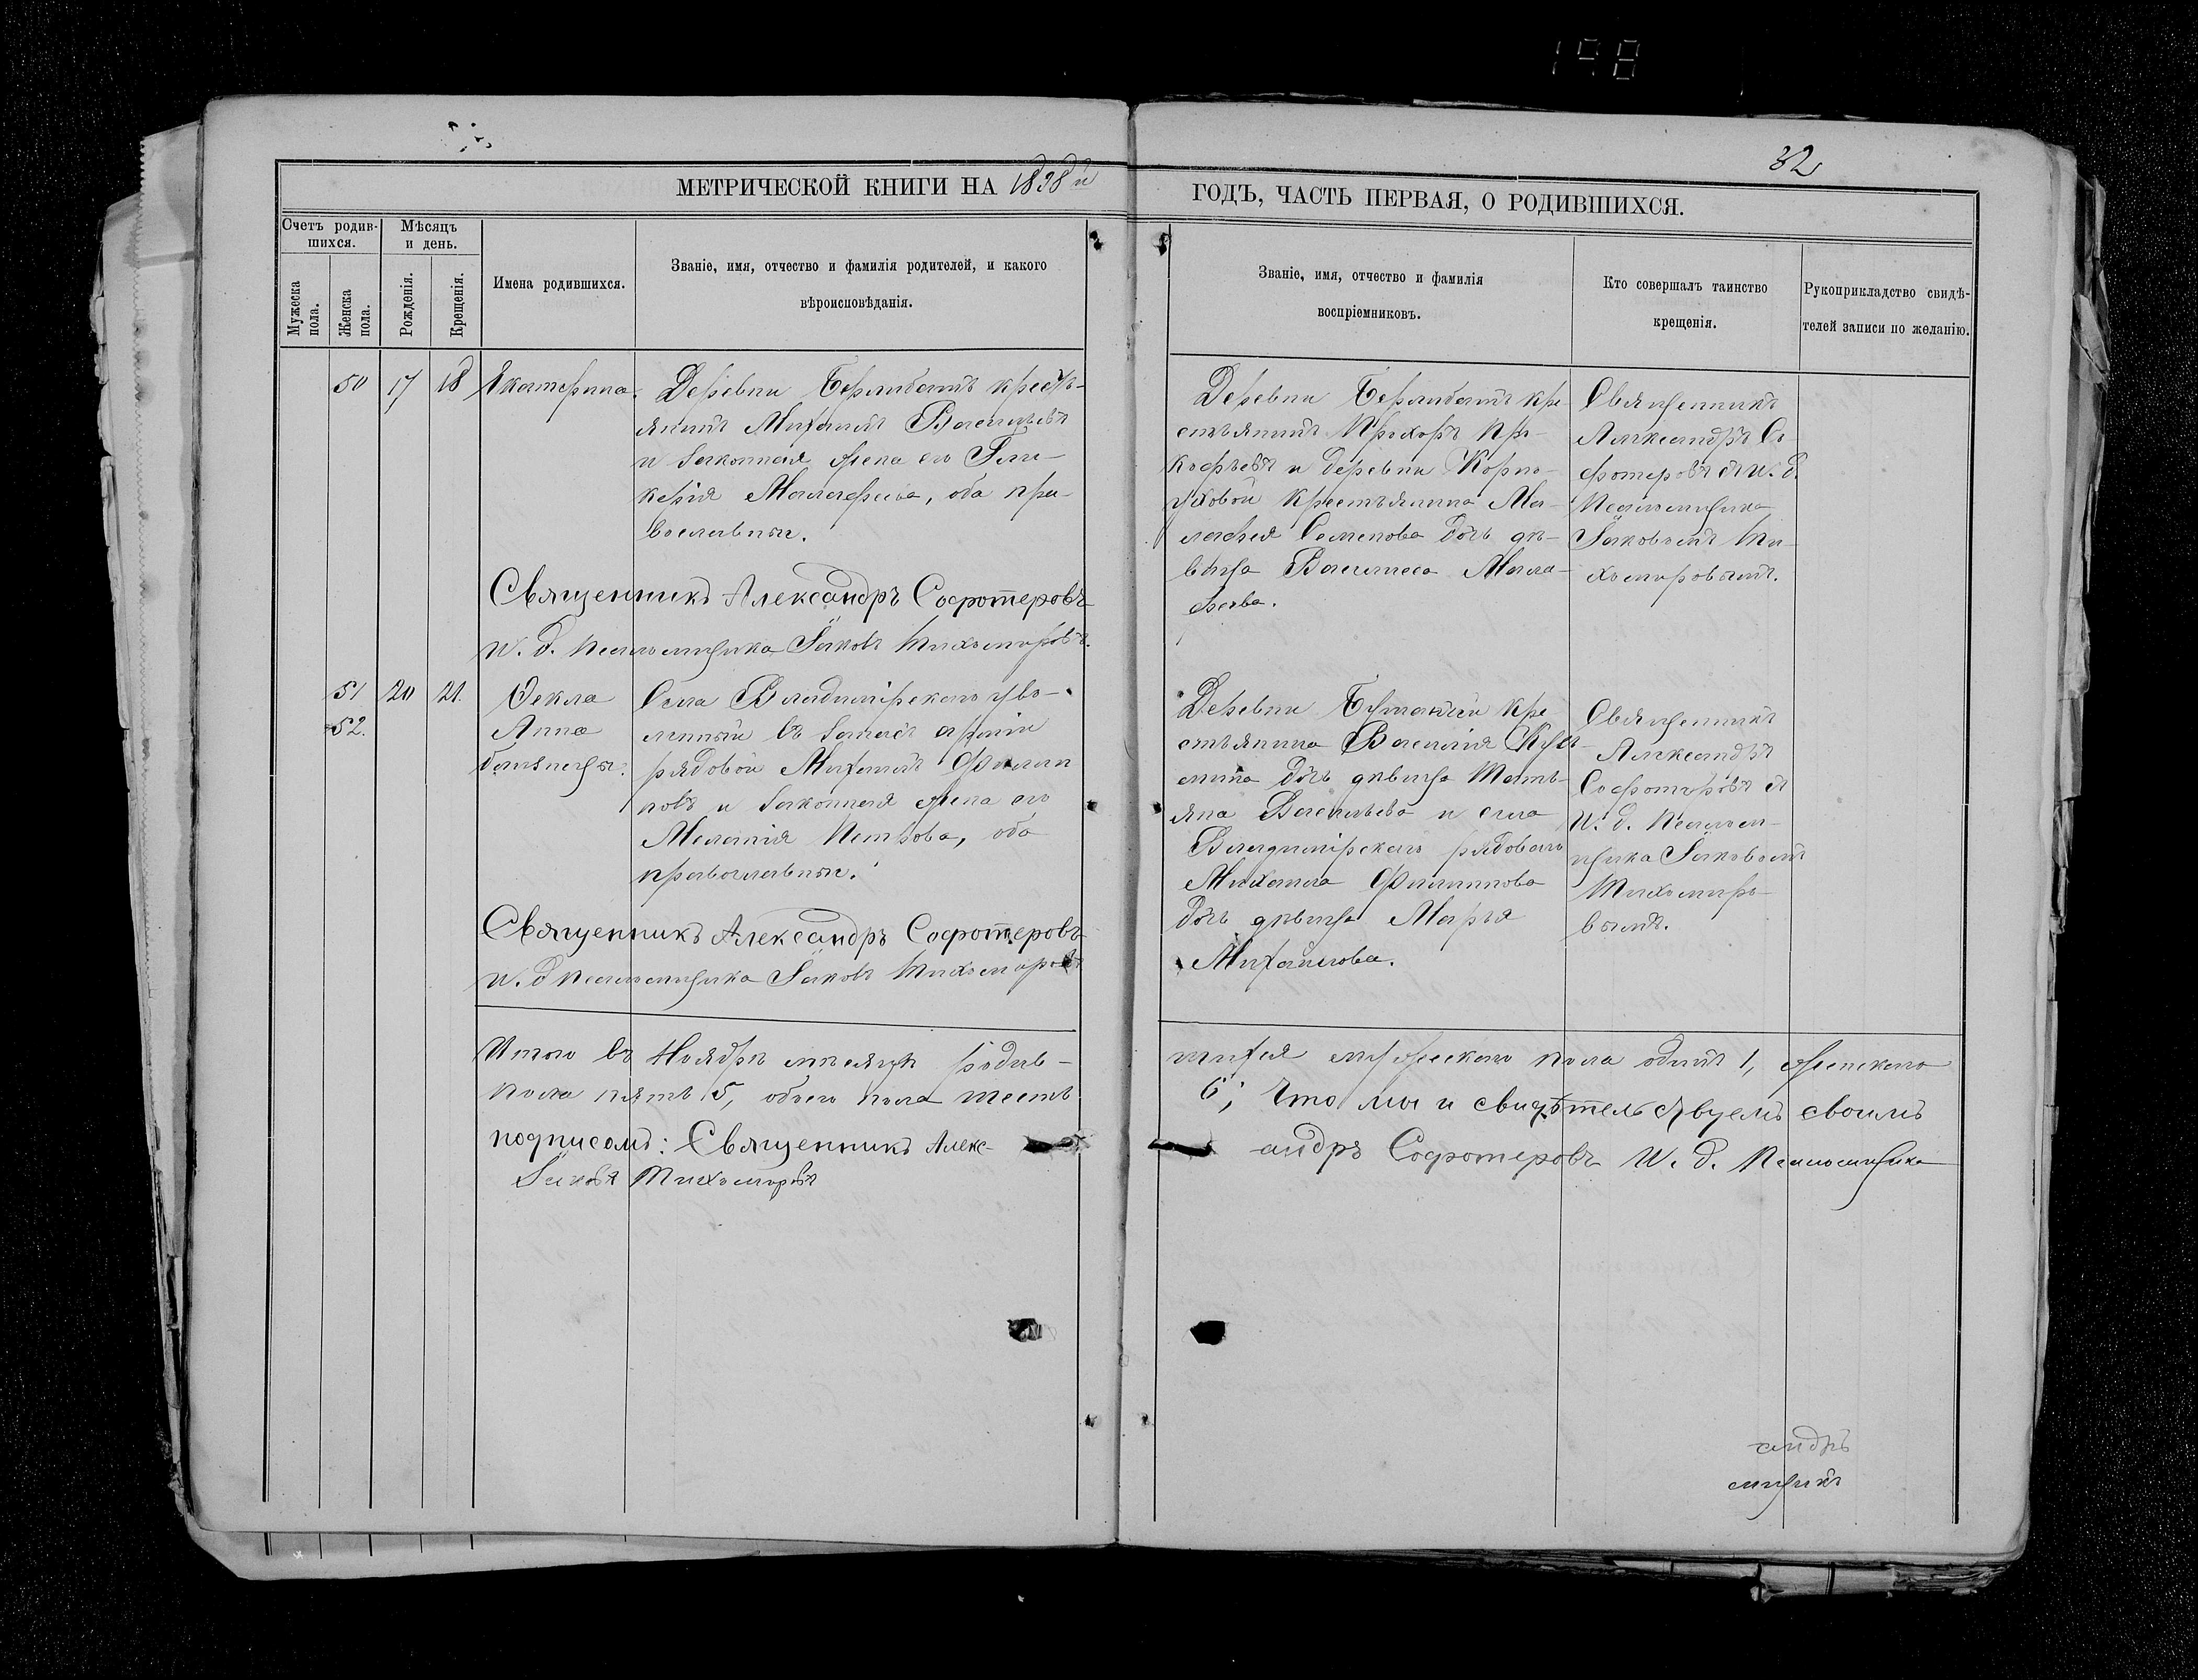 198
32
МЕТРИЧЕСКОЙ КНИГИ НА 1898 й
ГОДЪ, ЧАСТЬ ПЕРВАЯ, О РОДИВШИХСЯ.
Счетъ родив-
шихся.
Мѣсяцъ
и день.
Мужеска
пола.
Женска
пола.
Рожденія.
Крещенія.
Имена родившихся.
Званіе, имя, отчество и фамилія родителей, и какого
вѣроисповѣданія.
Званіе, имя, отчество и фамилія
воспріемниковъ.
Кто совершалъ таинство
крещенія.
Рукоприкладство свидѣ-
телей записи по желанію.
50 17 18 Екатерина.
Деревни крестъ-
янинъ Михаилъ Васильевъ
и законная жена его Гли-
керія Малафеева, оба пра-
вославные.
Священникъ Александръ Софотеровъ
И. д. псаломщика Іаковъ Тихомировъ.
Деревни кре-
стьянинъ Прохоръ Про-
кофьевъ и деревни Корно-
уховой крестьянина Ма-
лафея Семенова дочь дѣ-
вица Василиса Мала-
феева.
Священникъ
Александръ Со-
фотеровъ съ И. д.
Псаломщика
Іаковомъ Ти-
хомировымъ.
51 20 21. Фекла
52. Анна
близнецы.
Села Владимірскаго уво-
ленный въ запасъ арміи
рядовой Михаилъ Филип
повъ и законная жена его
Меланія Петрова, оба
православные.
Священникъ Александръ Софотеровъ
И. д псаломщика Іаковъ Тихомировъ
Деревни кре
стьянина Василія Кузь-
мина дочь дѣвица Тать-
яна Васильева и села
Владимірскаго рядоваго
Михаила Филиппова
дочь дѣвица Марья
Михайлова.
Священникъ
Александръ
Софотеровъ съ
И. д. Псалом-
щика Іаковомъ
Тихомиро-
вымъ.
Итого въ Ноябрѣ мѣсяцѣ родив-
шихся мужескаго пола одинъ 1, женскаго
пола пять 5, обоего пола шесть
6; Что мы и свидѣтельствуемъ своимъ
подписомъ: Священникъ Алекс-
андръ Софотеровъ И. д. Псаломщика
Іаковъ Тихомировъ
андръ
мщикъ